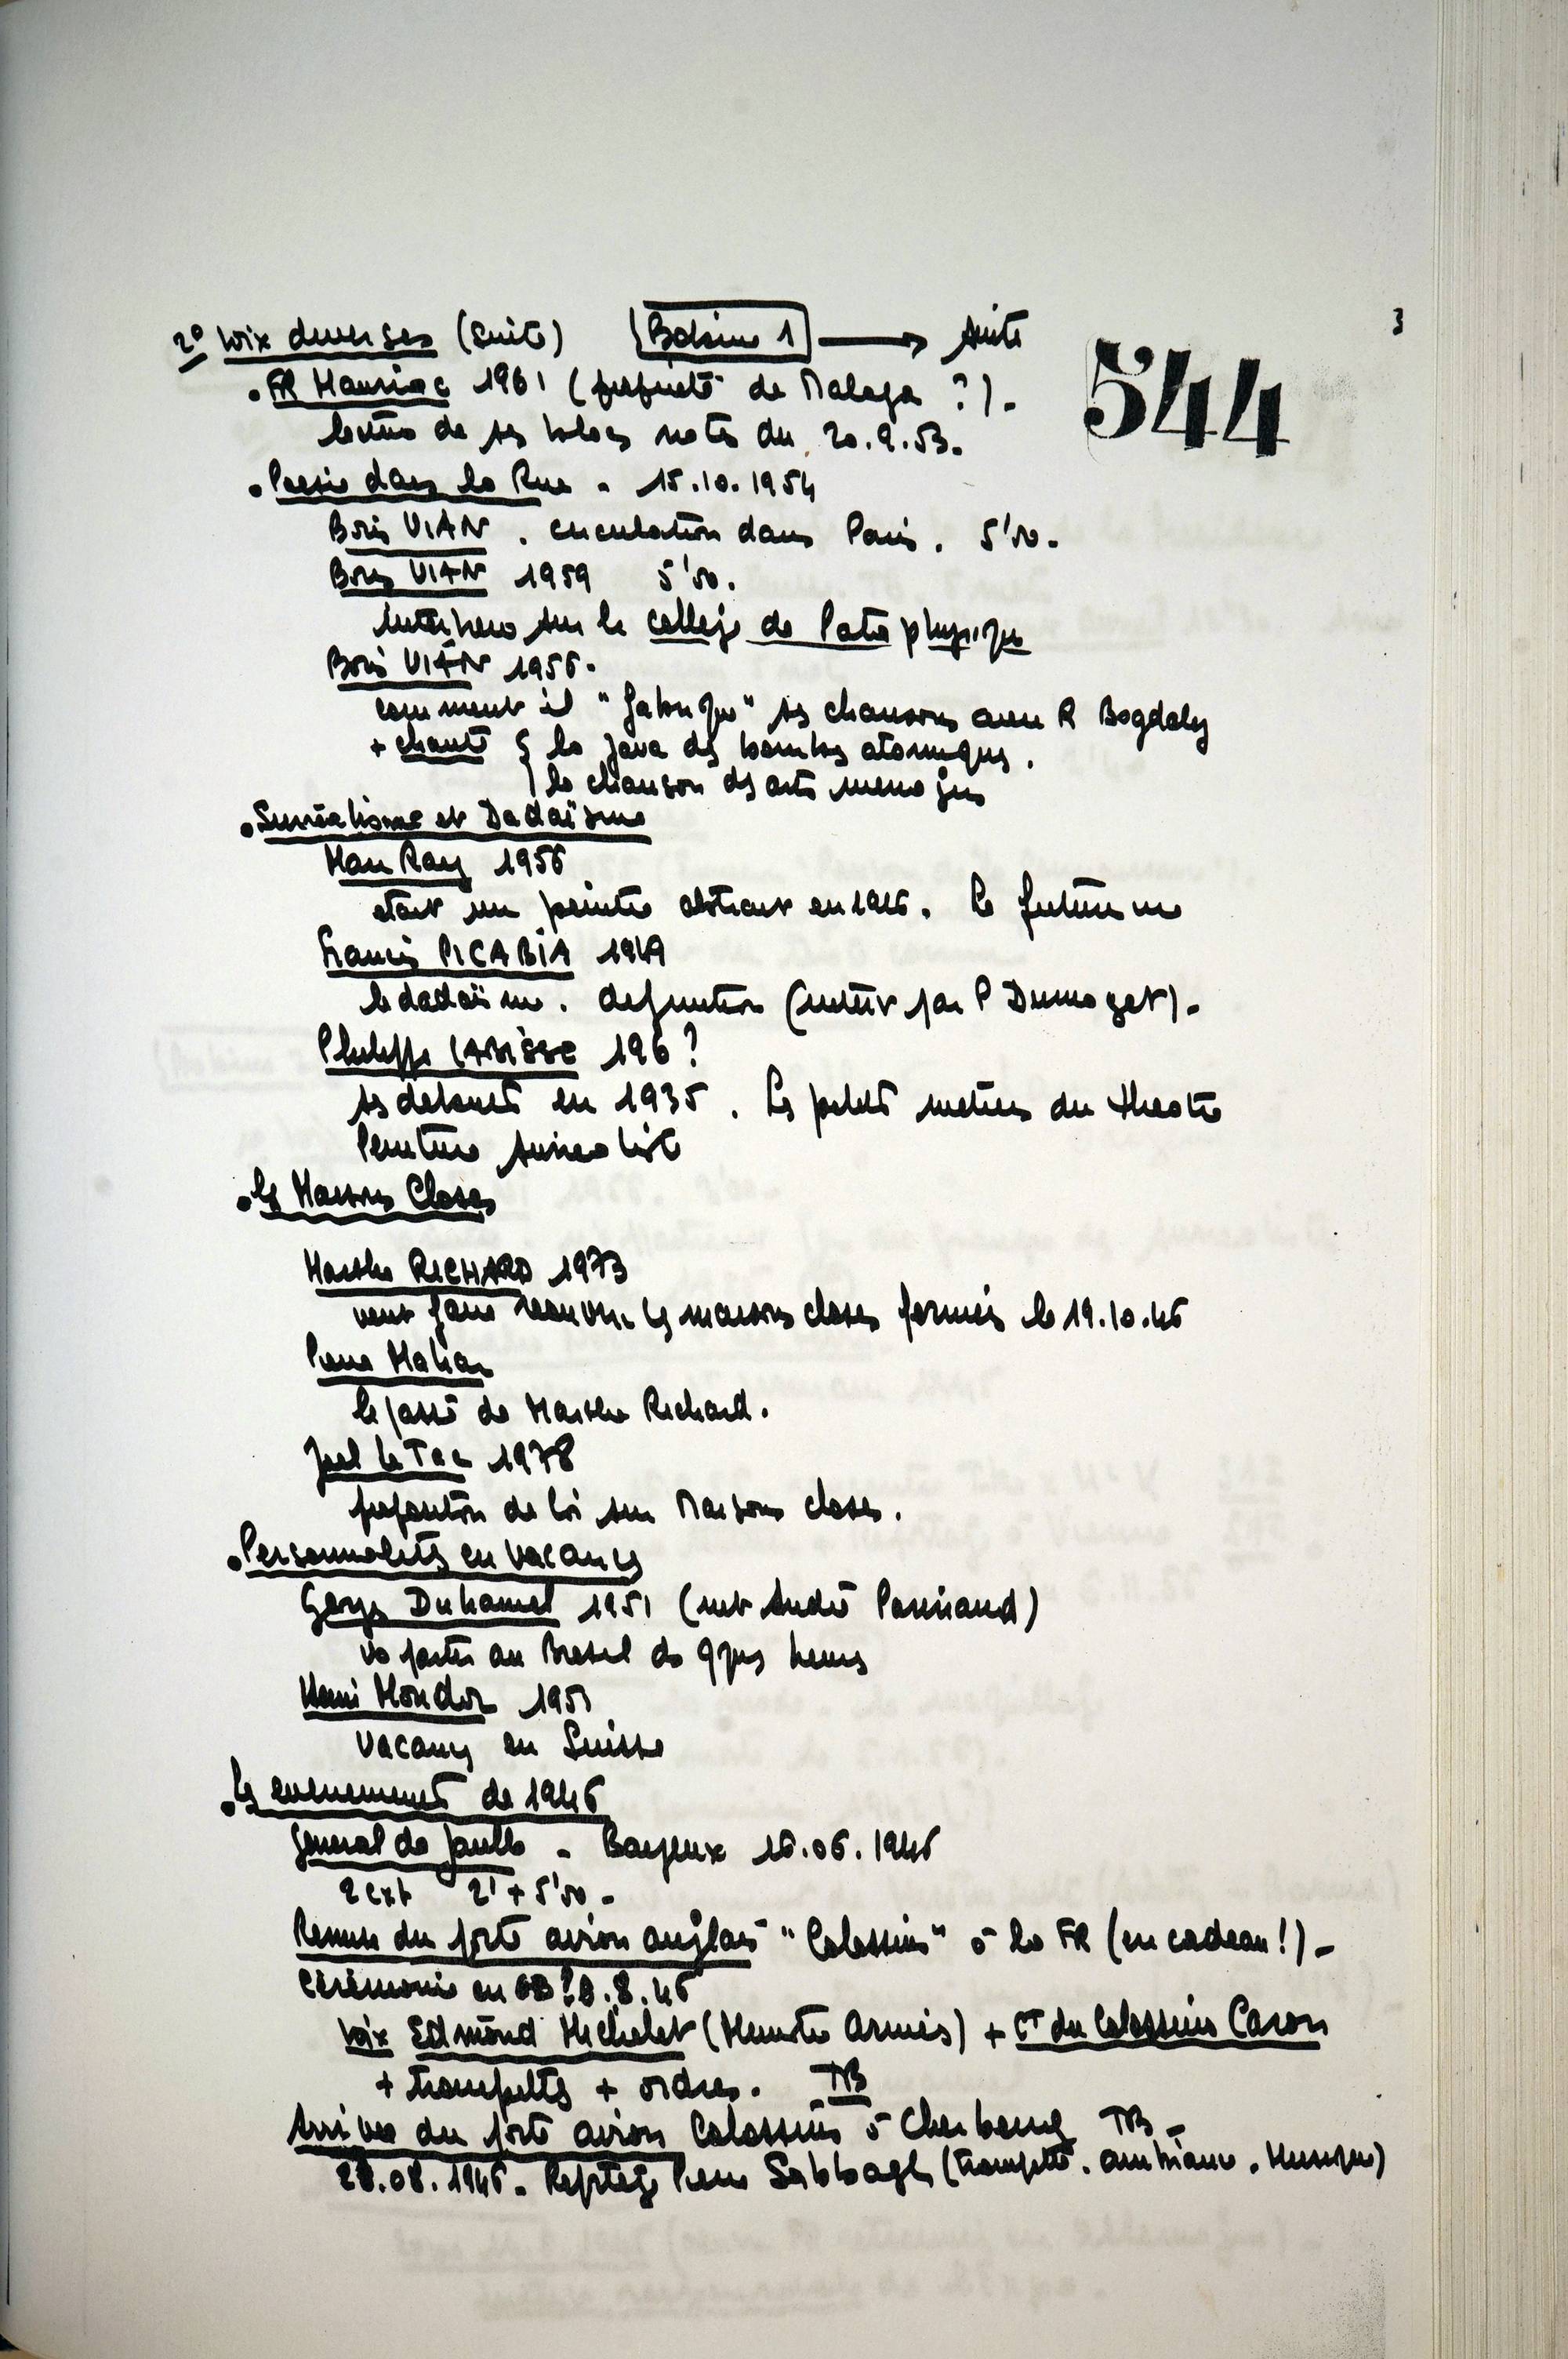 3
2° Voix diverses (suite) Bobine 1 → suite
544
. FR Mauriac 1961 (propriété de Malagar ?) -
lecture de ses blocs notes du 20.9.53.
. Poesie dans la Rue - 15.10.1954
Boris VIAN . circulation dans Paris . 5'50 -
Boris VIAN 1959 5'50.
sur le college de Pataphysique
Boris VIAN 1956 -
comment il "fabrique" ses chansons avec R Bogdaly
+ chante { la java des bombes atomiques .
la chanson des arts menagers
. Surréalisme et Dadaïsme
Man Ray 1956
était un peintre abstrait en 1916. Le futurisme
Francis PICABIA 1949
le dadaïsme . definition (interv par P Dumayet) -
Philippe LABISSE 196 ?
ses debuts en 1935 . Les petits metiers du theatre
Peinture surrealiste
. Les Maisons Closes
Marthe RICHARD 1973
veut faire reouvrir les maisons closes fermées le 19.10.46
Pierre
le passé de Marthe Richard .
Joel le Tac 1978
proposition de loi sur Maisons closes .
. Personnalités en vacances
Georges Duhamel 1951 (int André Parinaud)
va partir au Bresil de qques heures
Henri Mondor 1951
Vacances en Suisse
. Les evenements de 1946
General de Gaulle - Bayeux 16.06.1946
2 ext 2' + 5'50 -
Remise du porte avion anglais "Colossus" à la FR (en cadeau !) -
Cérémonie en GB ? 8.46
Voix Edmond Michelet (Ministre Armées) + Ct du Colossus Caron
+ trompettes + ordres . TB
Arrivée du porte avion Colossus à Cherbourg TB -
28.08.1946 - Reptge Pierre Sabbagh (trompette . ambiance . Musique)